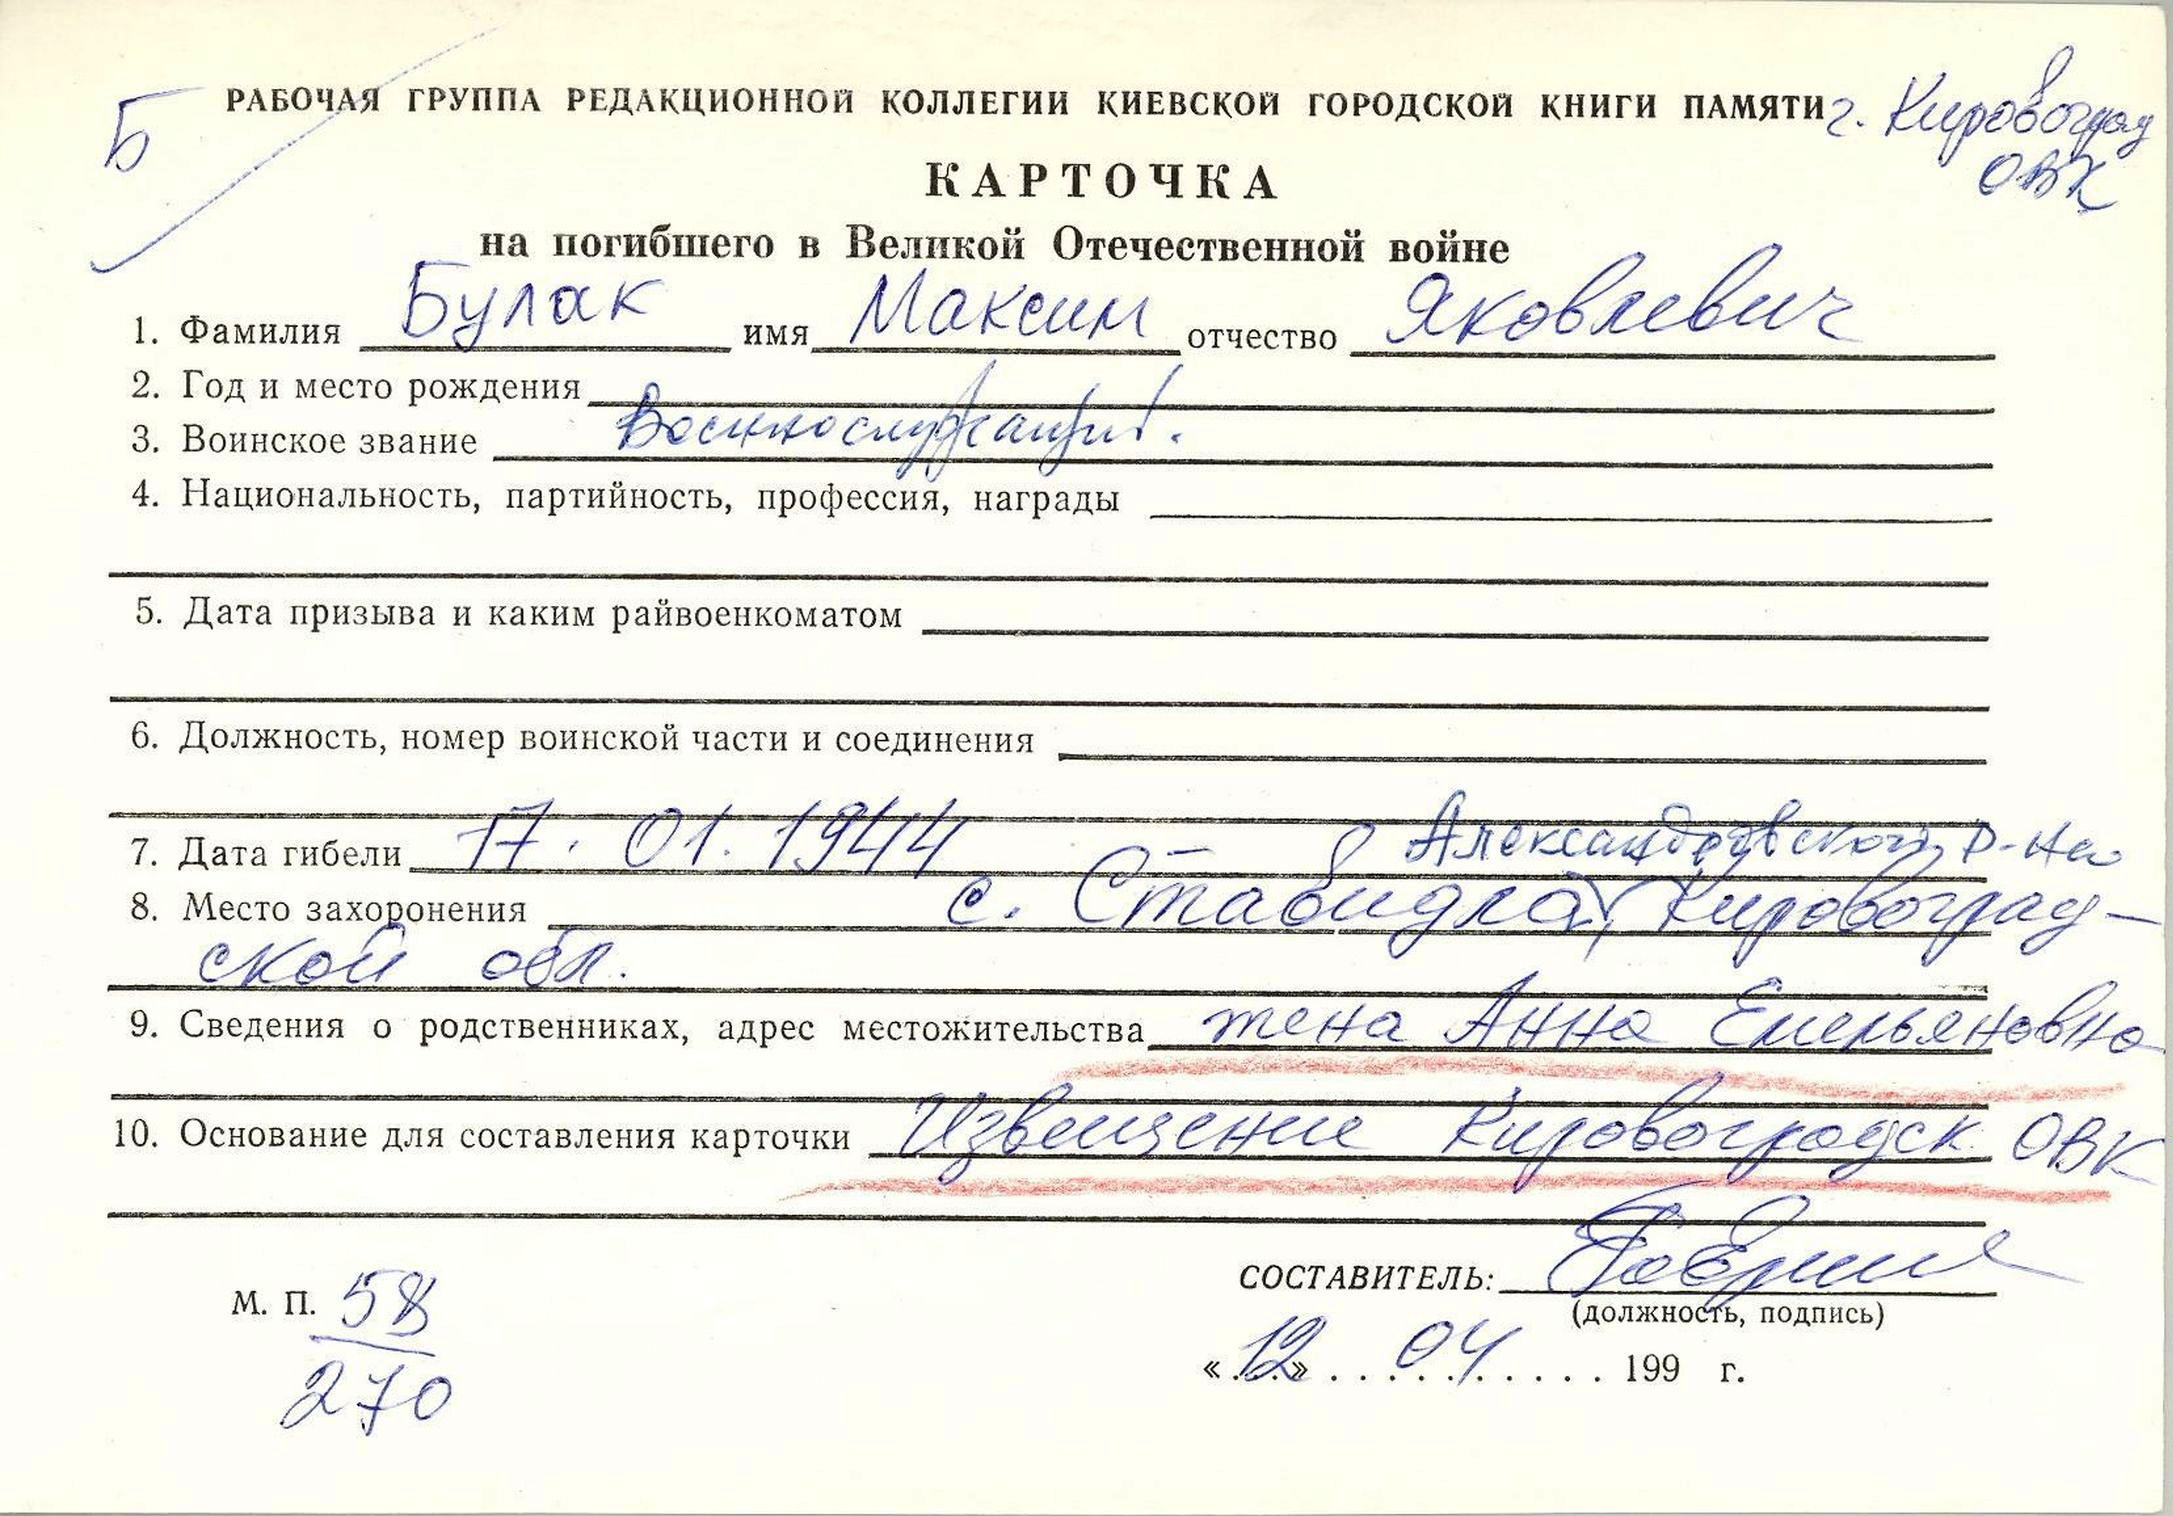 Б
РАБОЧАЯ ГРУППА РЕДАКЦИОННОЙ КОЛЛЕГИИ КИЕВСКОЙ ГОРОДСКОЙ КНИГИ ПАМЯТИ г. Кировоград
ОВК
КАРТОЧКА
на погибшего в Великой Отечественной войне
1. Фамилия Булак имя Максим отчество Яковлевич
2. Год и место рождения
3. Воинское звание Военнослужащий.
4. Национальность, партийность, профессия, награды
5. Дата призыва и каким райвоенкоматом
6. Должность, номер воинской части и соединения
7. Дата гибели 17. 01. 1944
Александровского р-на
8. Место захоронения с. Ставидла, Кировоград-
ской обл.
9. Сведения о родственниках, адрес местожительства жена Анна Емельяновна
10. Основание для составления карточки Извещение Кировоградск. ОВК
СОСТАВИТЕЛЬ:
(должность, подпись)
М. П. 58
270
«12» 04 199 г.